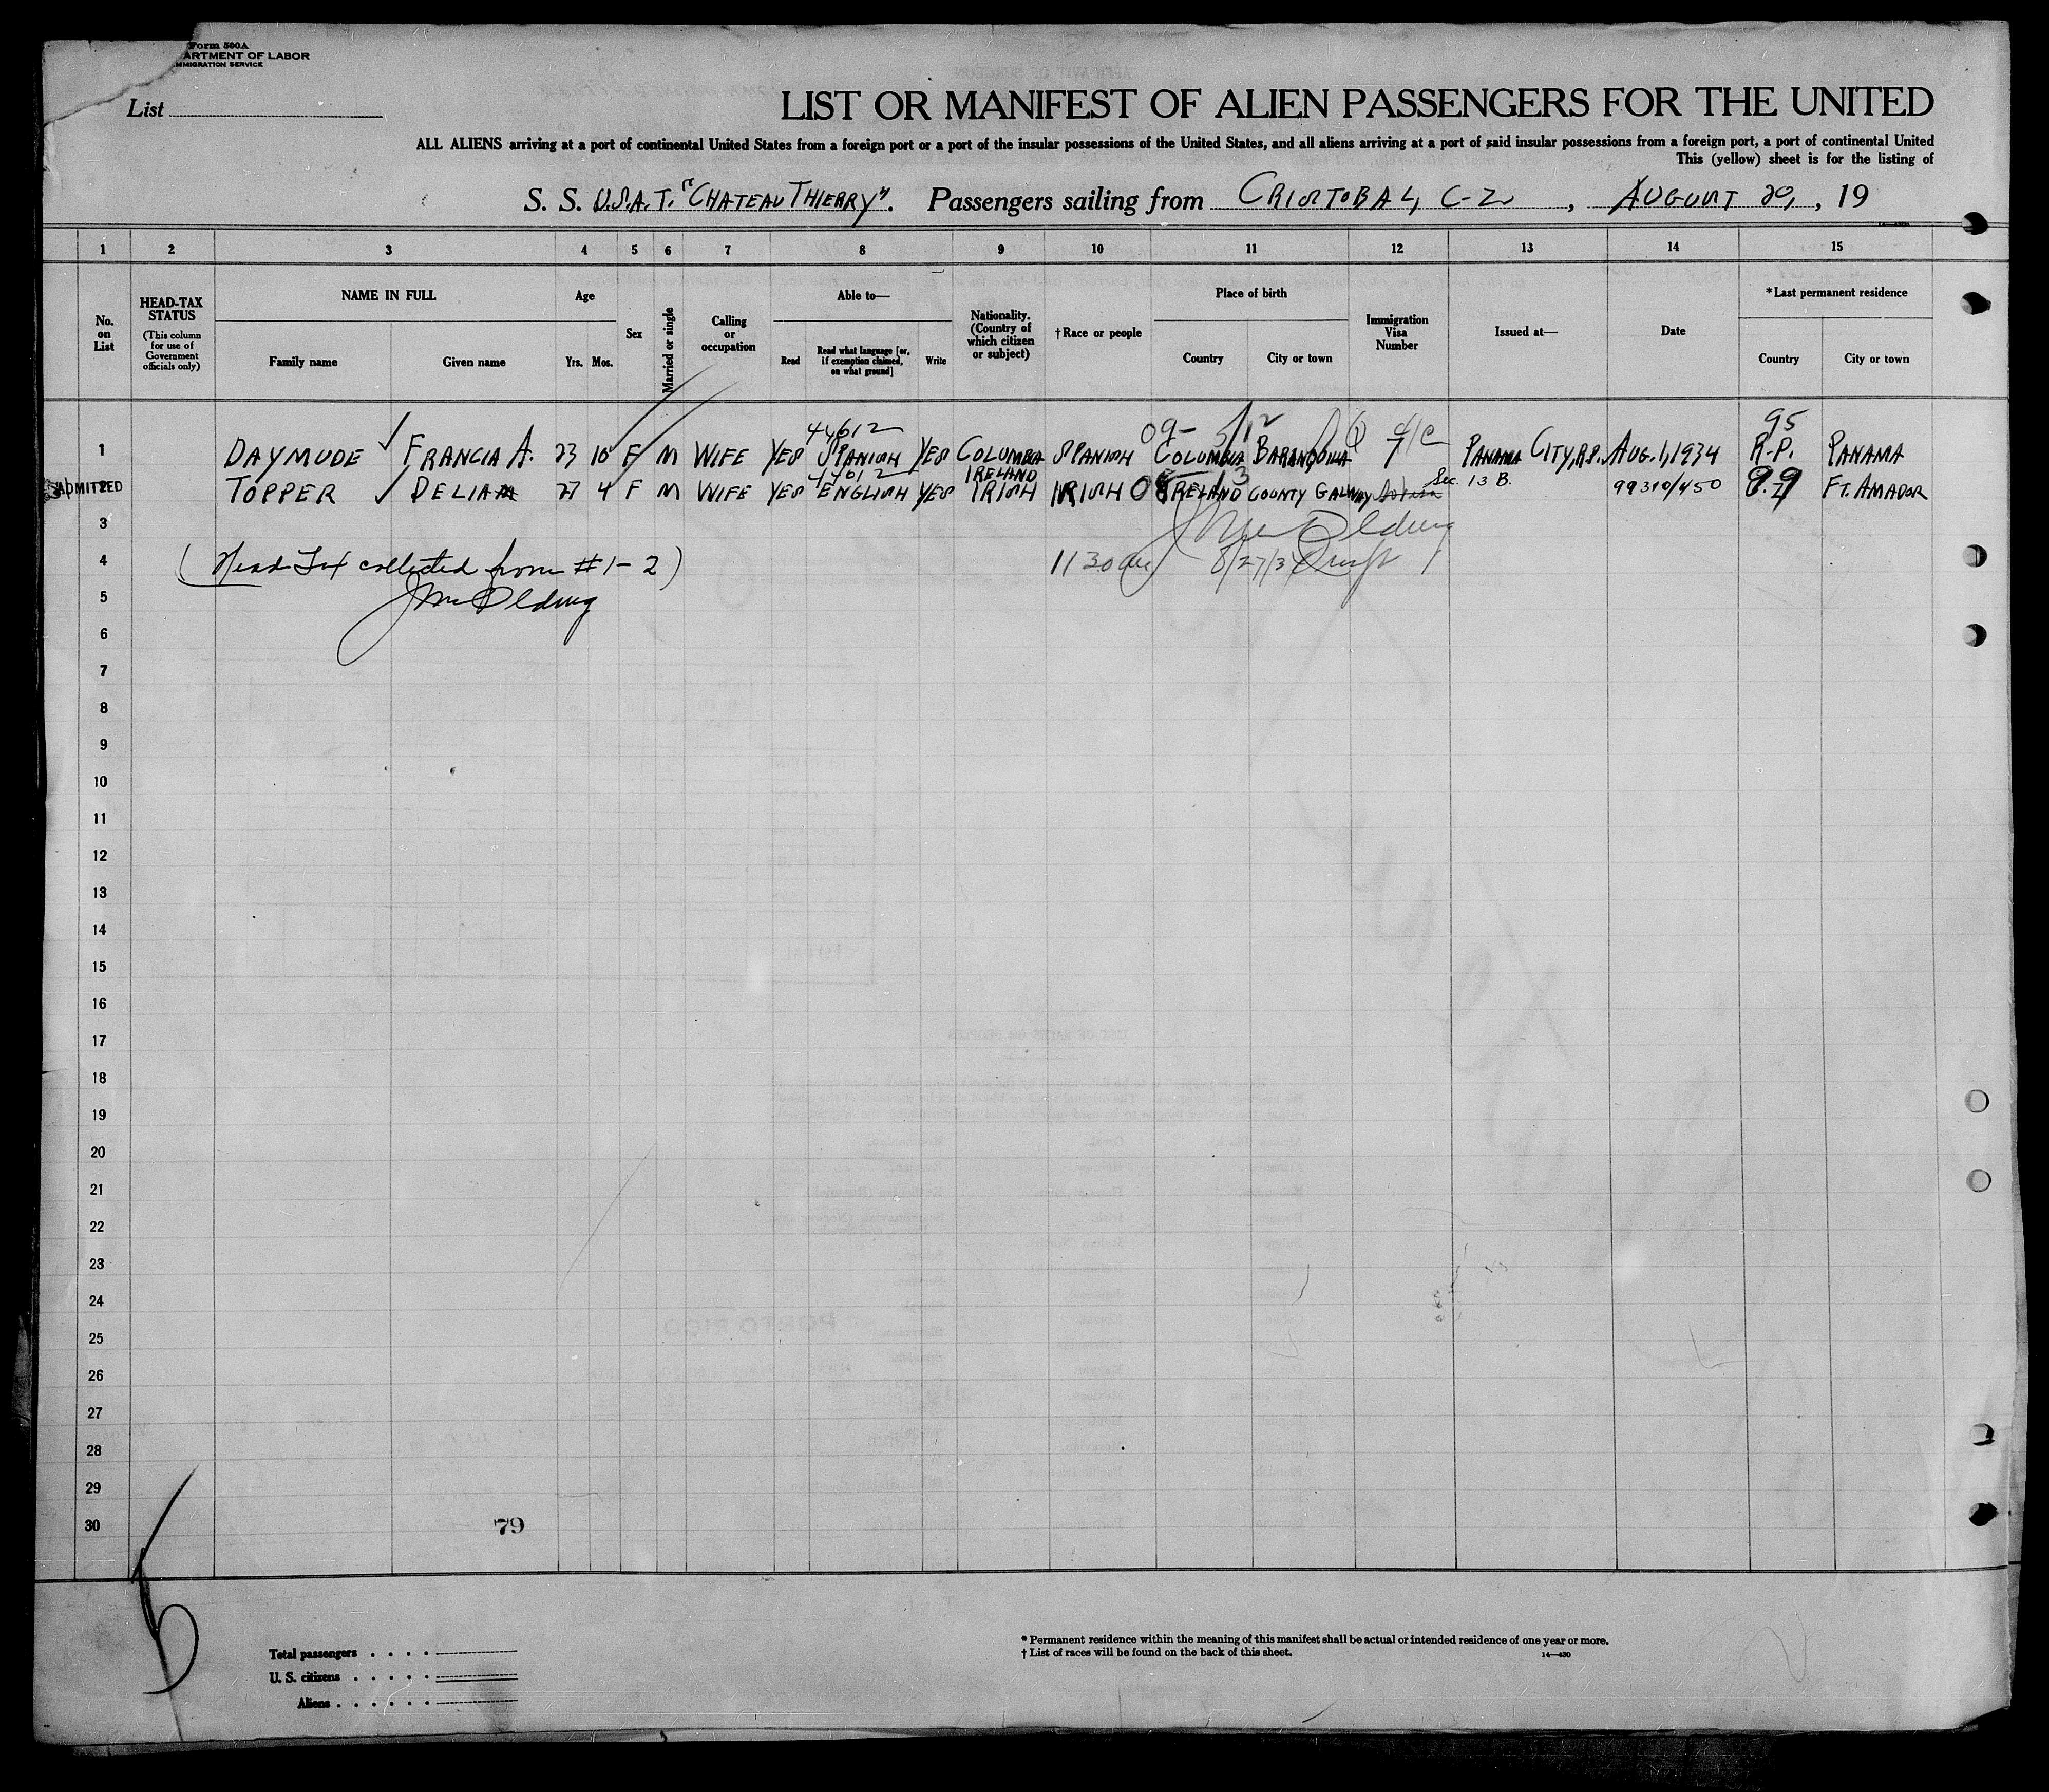 Form 500A
ARTMENT OF LABOR
MMIGRATION SERVICE
List
LIST OR MANIFEST OF ALIEN PASSENGERS FOR THE UNITED
ALL ALIENS arriving at a port of continental United States from a foreign port or a port of the insular possessions of the United States, and all aliens arriving at a port of said insular possessions from a foreign port, a port of continental United
This (yellow) sheet is for the listing of
S. S. U.S.A.T. "CHATEAU THIERRY". Passengers sailing from CRISTOBAL, C-Z, AUGUST 29, 19
1 2 3 4 5 6 7 8 9 10 11 12 13 14 15
No. on List
HEAD-TAX STATUS
(This column for use of Government officials only)
NAME IN FULL
Family name
Given name
Age
Yrs. Mos.
Sex
Married or single
Calling or occupation
Able to—
Read
Read what language [or, if exemption claimed, on what ground]
Write
Nationality. (Country of which citizen or subject)
†Race or people
Place of birth
Country
City or town
Immigration Visa Number
Issued at—
Date
*Last permanent residence
Country
City or town
44612 09- 95
1 DAYMUDE FRANCIA A. 23 10 F M WIFE YES SPANISH YES COLUMBIA SPANISH COLUMBIA BARANQUILLA 7 PANAMA CITY, R.P. AUG. 1, 1934 R.P. PANAMA
44612 IRELAND Sec. 13 B.
ADMITTED 2 TOPPER DELIA 27 4 F M WIFE YES ENGLISH YES IRISH IRISH IRELAND COUNTY GALWAY 99310/450 99 FT. AMADOR
3
4 (Head Tax collected from #1-2) 11 30 am 8/27/3
5
6
7
8
9
10
11
12
13
14
15
16
17
18
19
20
21
22
23
24
25
26
27
28
29
30
79
Total passengers
U. S. citizens
Aliens
* Permanent residence within the meaning of this manifest shall be actual or intended residence of one year or more.
† List of races will be found on the back of this sheet.
14—430